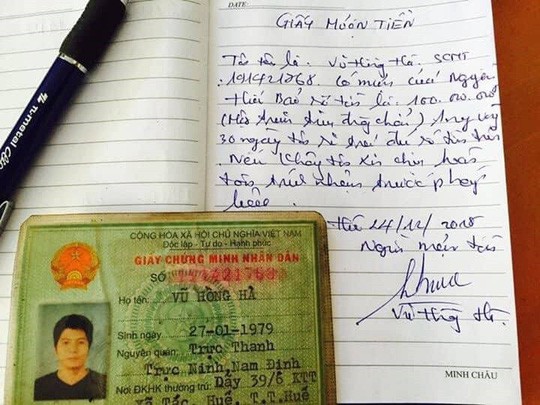 DATE:
GIẤY MƯỢN TIỀN
Tôi tên là Vũ Hồng Hà. SCMT
191421768. Có mượn của Nguyễn
Thái Bảo số tiền là 100.000.000
(Một trăm triệu đồng chẵn) Trong vòng
30 ngày tôi sẽ trả đủ số tiền trên
Nếu tôi xin chịu hoàn
toàn trách nhiệm trước pháp
luật
Huế 24/12/2018
Người mượn tiền
Vũ Hồng Hà.
MINH CHÂU
U-metal Clip
CỘNG HÒA XÃ HỘI CHỦ NGHĨA VIỆT NAM
Độc lập - Tự do - Hạnh phúc
GIẤY CHỨNG MINH NHÂN DÂN
SỐ 191421768
Họ tên: VŨ HỒNG HÀ
Sinh ngày 27-01-1979
Nguyên quán: Trực Thanh
Trực Ninh, Nam Định
Nơi ĐKHK thường trú: Dãy 39/6 KTT
Xã Tắc, Huế, T.T.Huế